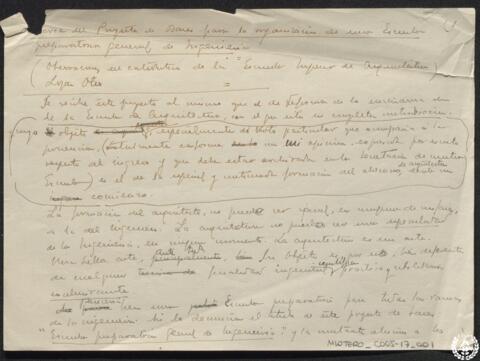 acerca del Proyecto de Bases para la organización de una Escuela
preparatoria general de Ingeniería
(Observaciones del catedrático de la "Escuela Superior de Arquitectura"
López Otero
Se recibe este proyecto al mismo que el de Reforma de la enseñanza
de la Escuela de Arquitectura, con el que está en completa contradicción.
objeto especialmente el Voto particular que acompaña a la
ponencia, (totalmente conforme con mi opinión, expuesta por escrito
respecto del ingreso y que debe estar archivada en la Secretaría de nuestra
Escuela) es el de la especial y continuada formación del alumno, desde su
comienzo.
de arquitectura
La formación del arquitecto, no puede ser igual, en ninguna de sus fases,
a la del Ingeniero. La arquitectura no puede ser una especialidad
de la Ingeniería, en ningún momento. La arquitectura es un arte.
Una bella arte, ante todo, Su objeto es por esto, bien diferente
de cualquier finalidad ingenieril, positiva y utilitaria
exclusivamente
bien una Escuela preparatoria para todas las ramas
de la ingeniería. Así lo denuncia el título de este proyecto de bases
"Escuela preparatoria general de Ingeniería" y la
MLOTERO_C005-17_001